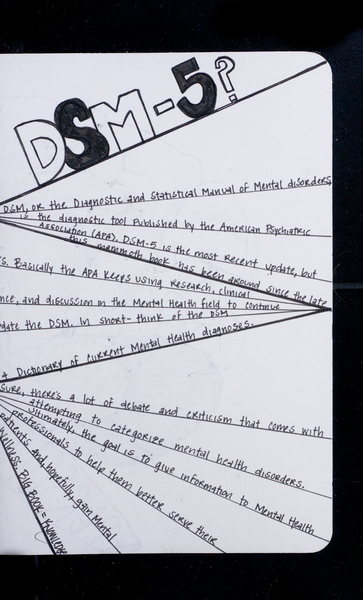 DSM-5?
DSM, or the Diagnostic and Statistical Manual of Mental disorders,
is the diagnostic tool Published by the American Psychiatric
Association (APA). DSM-5 is the most recent update, but
this mammoth book has been around since the late
s. Basically the APA keeps using research, clinical
nce, and discussion in the Mental Health field to continue
date the DSM. In short- think of the DSM
a Dictionary of current Mental Health diagnoses.
sure, there's a lot of debate and criticism that comes with
attempting to categorize mental health disorders.
Ultimately, the goal is to give information to Mental Health
professionals to help them better serve their
patients and, hopefully, gain Mental
Wellness. BIG BOOK = Knowledge